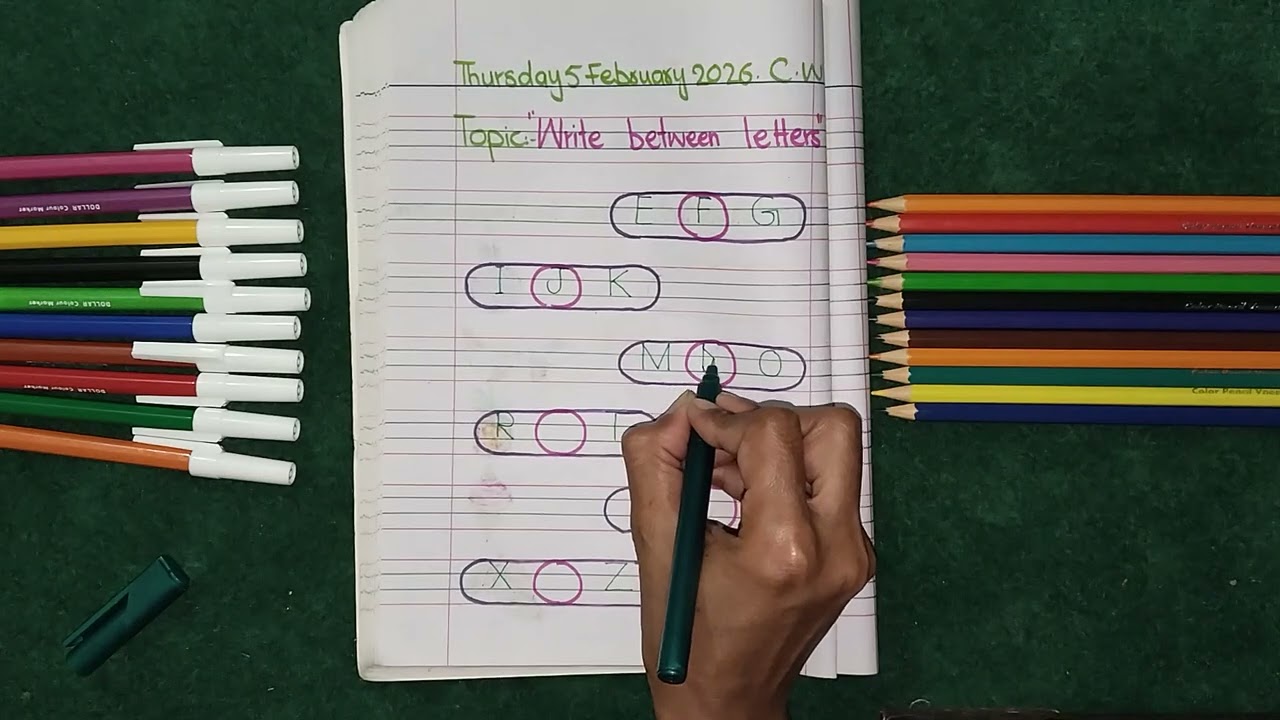 Thursday 5 February 2026. C.W
Topic:- "Write between letters"
E F G
I J K
M N O
R T
X Z
DOLLAR Colour Marker
DOLLAR Colour Marker
DOLLAR Colour Marker
Color Pencil